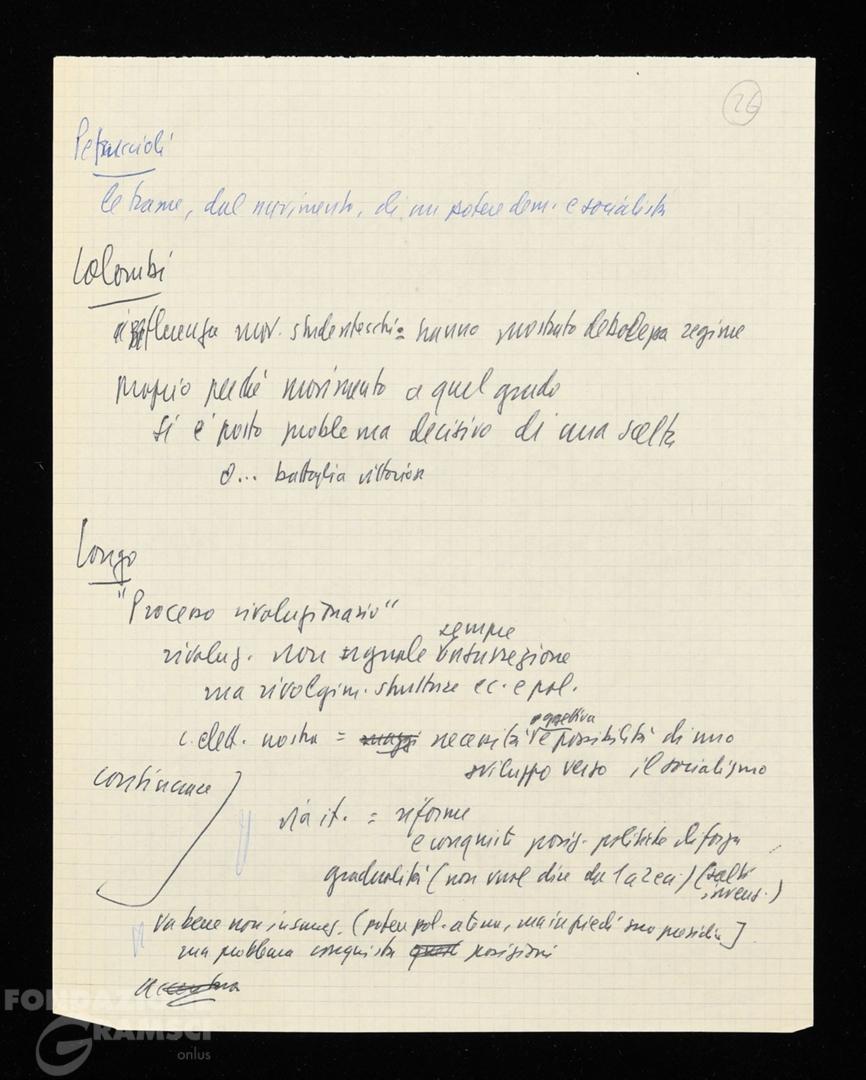 26
Petruccioli
le trame, dal movimento, di un potere dem. e socialista
Colombi
influenza mov. studenteschi = hanno mostrato debolezza regime
proprio perché movimento a quel grado
si è posto problema decisivo di una scelta
o... battaglia vittoriosa
Longo
"Processo rivoluzionario"
sempre
rivoluz. non uguale insurrezione
ma rivolgim. strutture ec. e pol.
oggettiva
c. elett. nostra = necessità e possibilità di uno
sviluppo verso il socialismo
continuare
via it. = riforme
e conquista posiz. politiche di forza
gradualità (non vuol dire da 1 a 2 ecc.) (salti
invens.)
va bene non insurrez. (potere pol. in piedi suo
ma problema conquista posizioni
FONDAZIONE
GRAMSCI
onlus